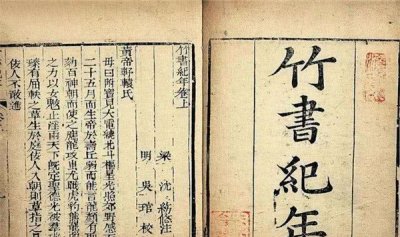 竹書紀年
竹書紀年卷上
梁 沈約注
明 吳琯校
黃帝軒轅氏
母曰附寶見大電繞北斗樞星光照郊野感
二十五月而生帝於壽丘弱而能言龍顏有
劾百神朝而使之應龍攻蚩尤戰虎豹
之力以女魃止淫雨天下既定聖德光被羣
臻有屈軼之草生於庭佞人入朝則草指之
佞人不敢進